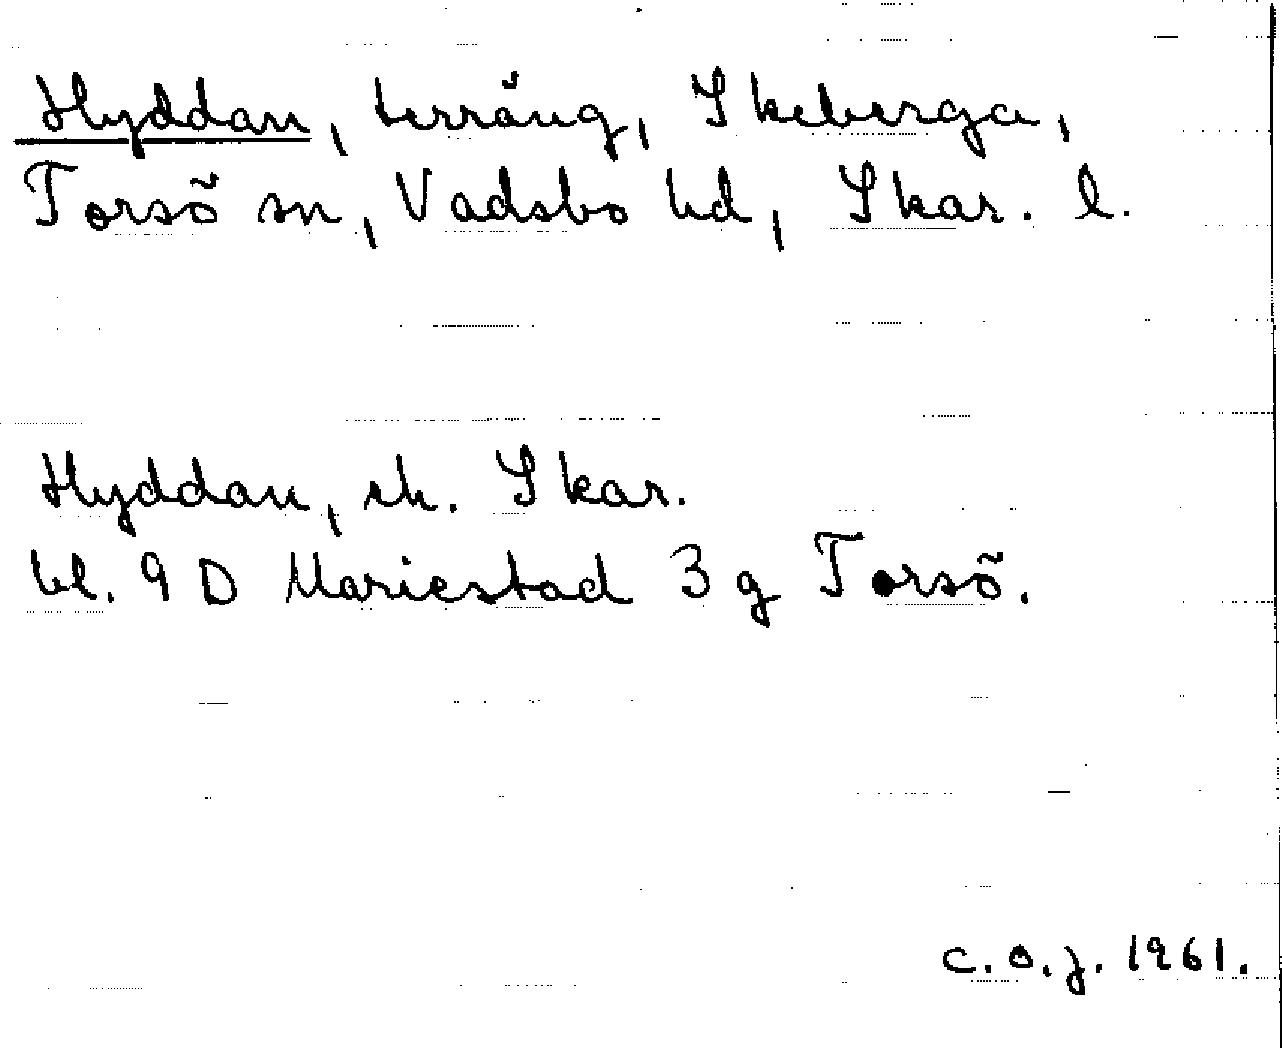 Hyddan, terräng, Skeberga,
Torsö sn, Vadsbo hd, Skar. l.
Hyddan, ek. Skar.
bl. 9 D Mariestad 3 g Torsö.
C.O.J. 1961.